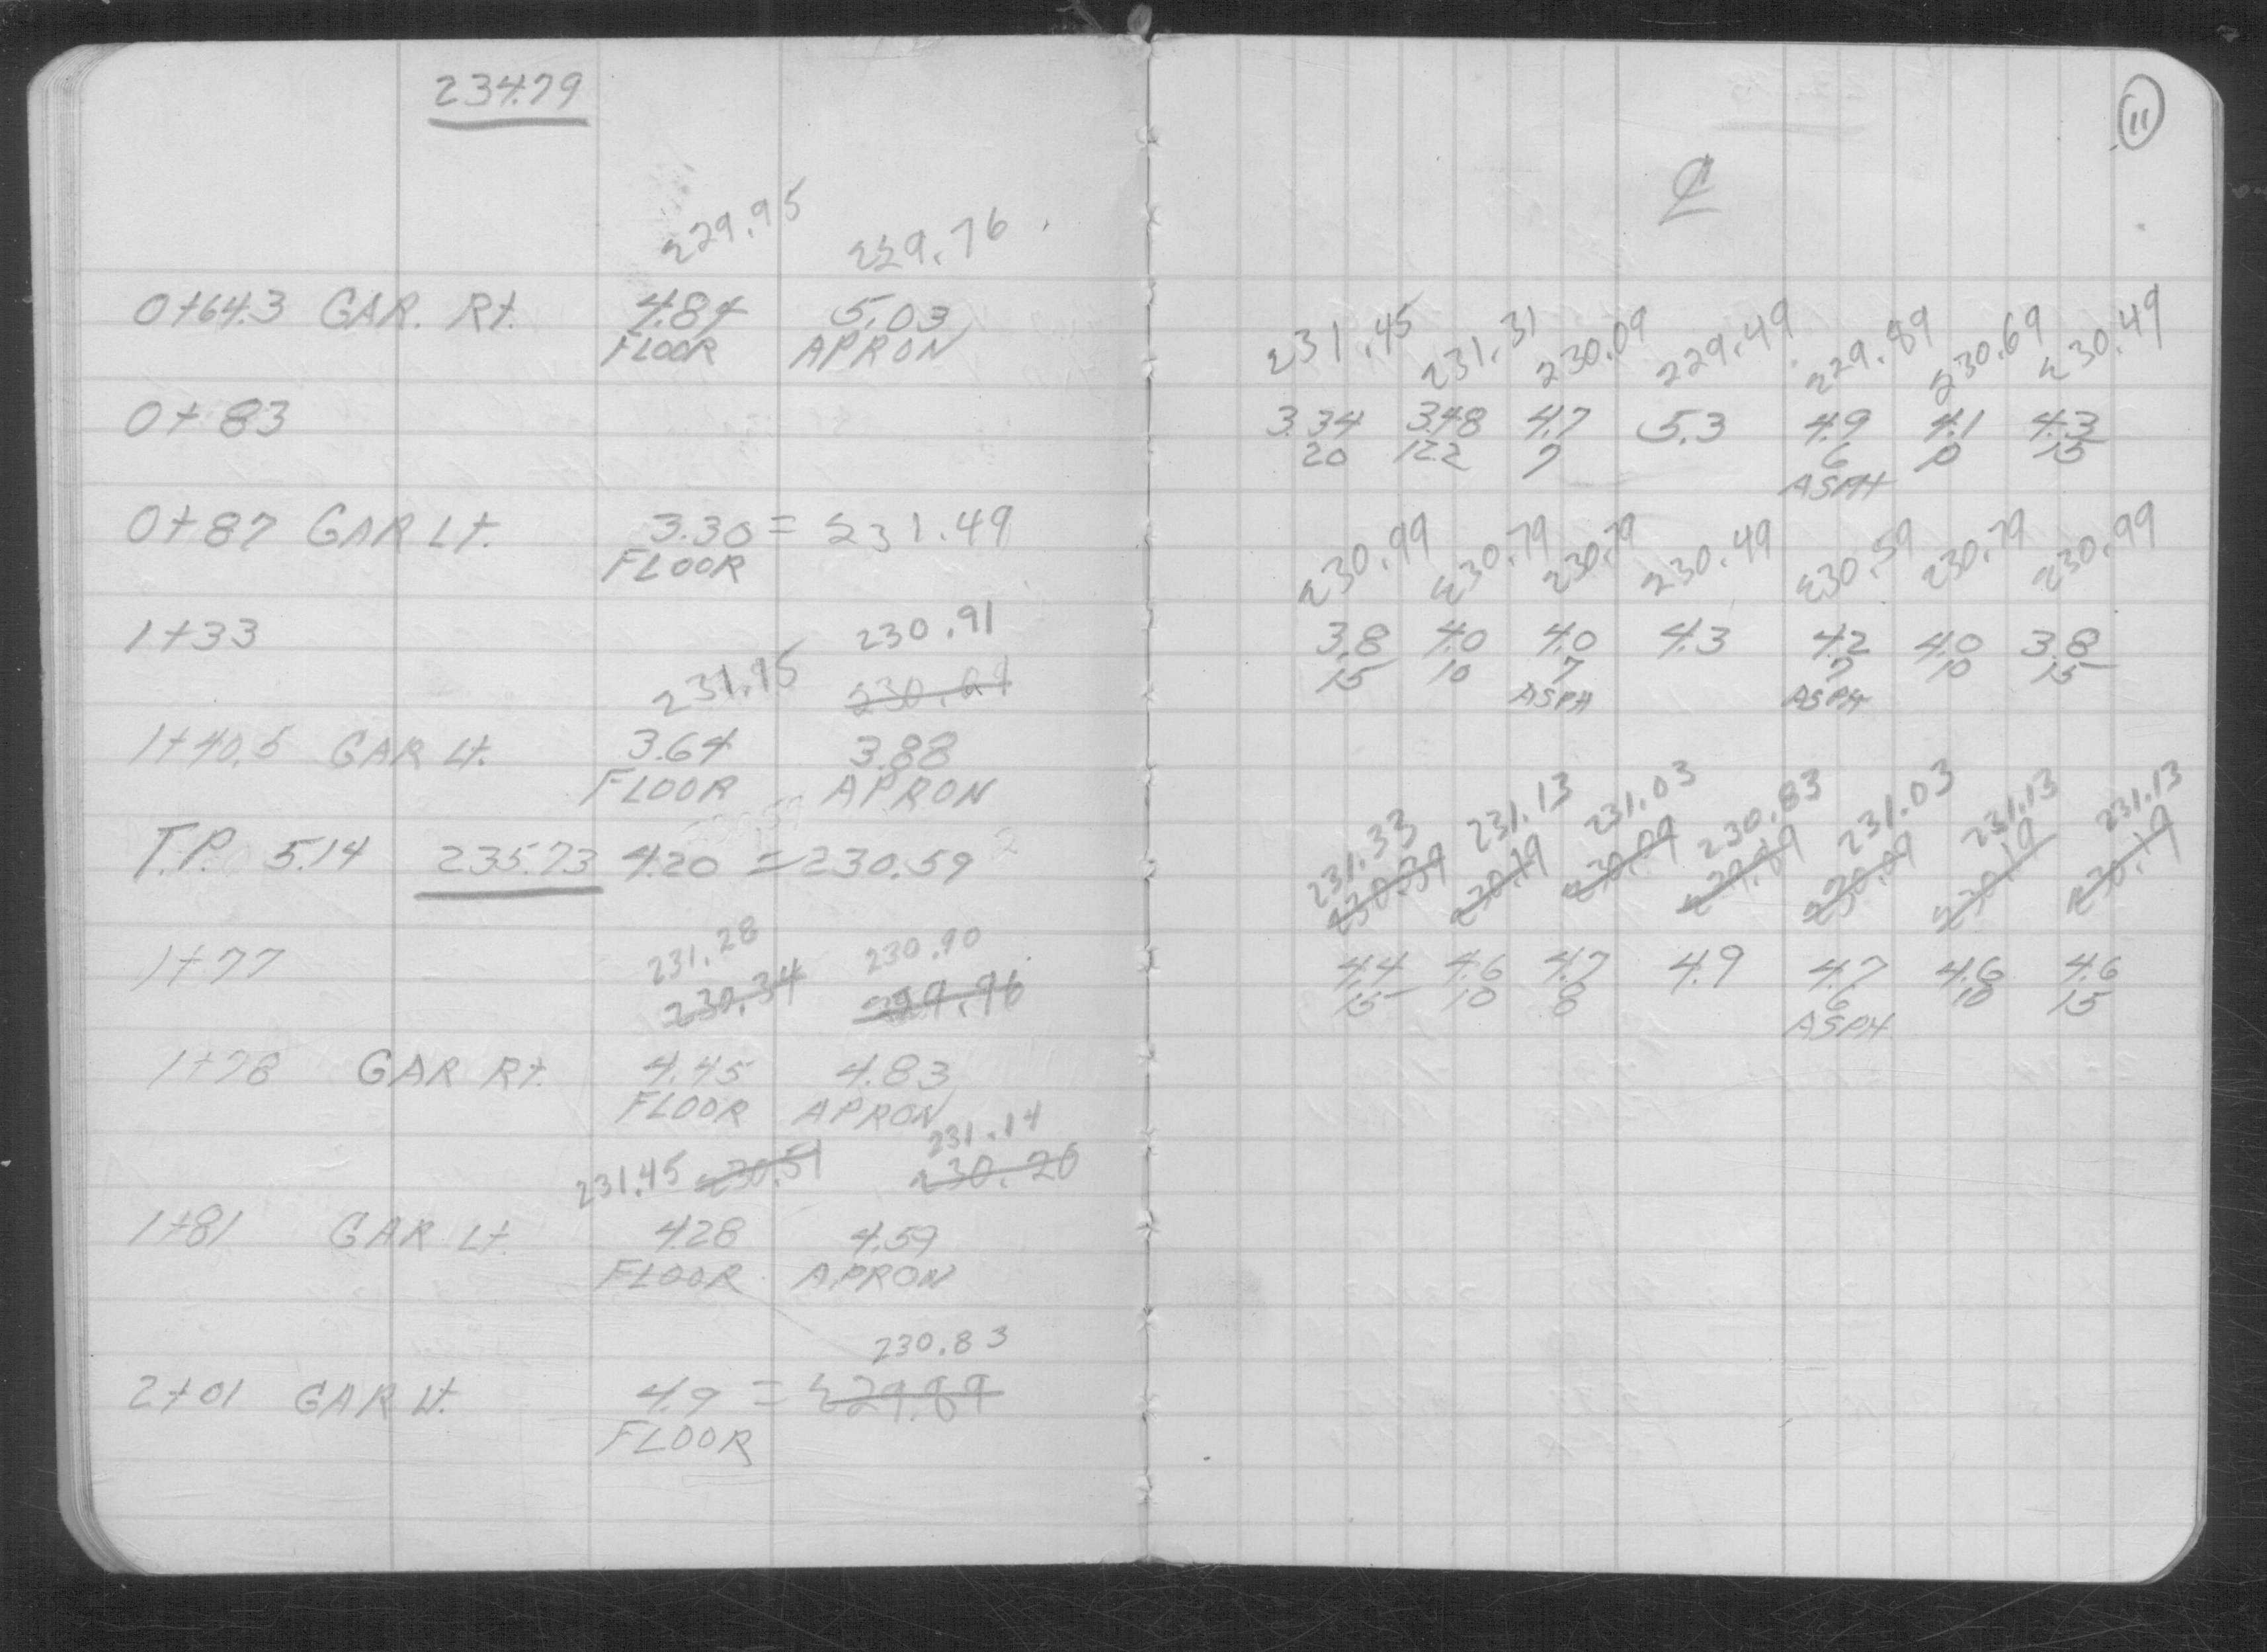 234.79
229.95 229.76
0+64.3 GAR. Rt. 4.84 5.03
FLOOR APRON
0+83
0+87 GAR Lt. 3.30 = 231.49
FLOOR
1+33 230.91
231.15 230.91
1+40.5 GAR Lt. 3.64 3.88
FLOOR APRON
T.P. 5.14 235.73 4.20 = 230.59
1+77 231.28 230.90
230.34 229.96
1+78 GAR Rt. 4.45 4.83
FLOOR APRON
231.14
231.45 230.51 230.20
1+81 GAR Lt. 4.28 4.59
FLOOR APRON
230.83
2+01 GAR Lt. 4.9 = 229.89
FLOOR
11
℄
231.45 231.31 230.09 229.49 229.89 230.69 230.49
3.34 3.48 4.7 5.3 4.9 4.1 4.3
20 12.2 7 6 10 15
ASPH
230.99 230.79 230.79 230.49 230.59 230.79 230.99
3.8 4.0 4.0 4.3 4.2 4.0 3.8
15 10 7 7 10 15
ASPH ASPH
231.33 231.13 231.03 230.83 231.03 231.13 231.13
230.39 230.19 230.09 229.89 230.09 230.19 230.19
4.4 4.6 4.7 4.9 4.7 4.6 4.6
15 10 8 6 10 15
ASPH